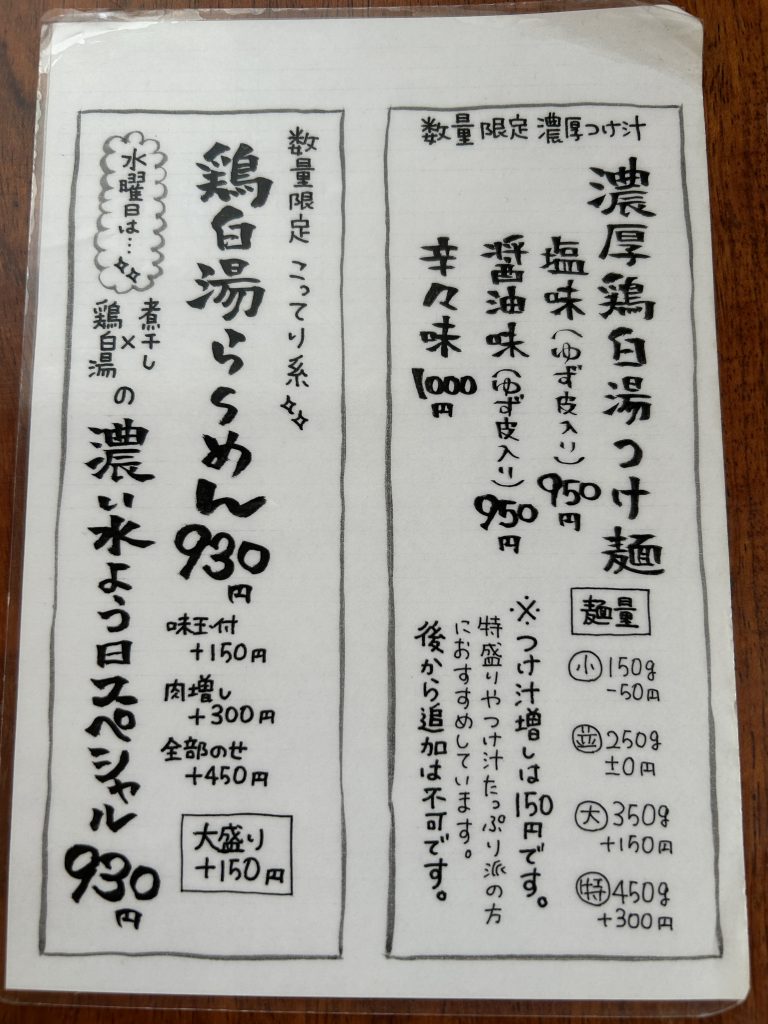 数量限定 濃厚つけ汁
濃厚鶏白湯つけ麺
塩味(ゆず皮入り)950円
醤油味(ゆず皮入り)950円
辛々味 1000円
麺量
小 150g
-50円
並 250g
±0円
大 350g
+150円
特 450g
+300円
※つけ汁増しは150円です。
特盛りやつけ汁たっぷり派の方
におすすめしています。
後から追加は不可です。
数量限定 こってり系
鶏白湯らぁめん 930円
味玉付
+150円
肉増し
+300円
全部のせ
+450円
大盛り
+150円
水曜日は…
煮干し
×
鶏白湯
の
濃い水よう日スペシャル 930円